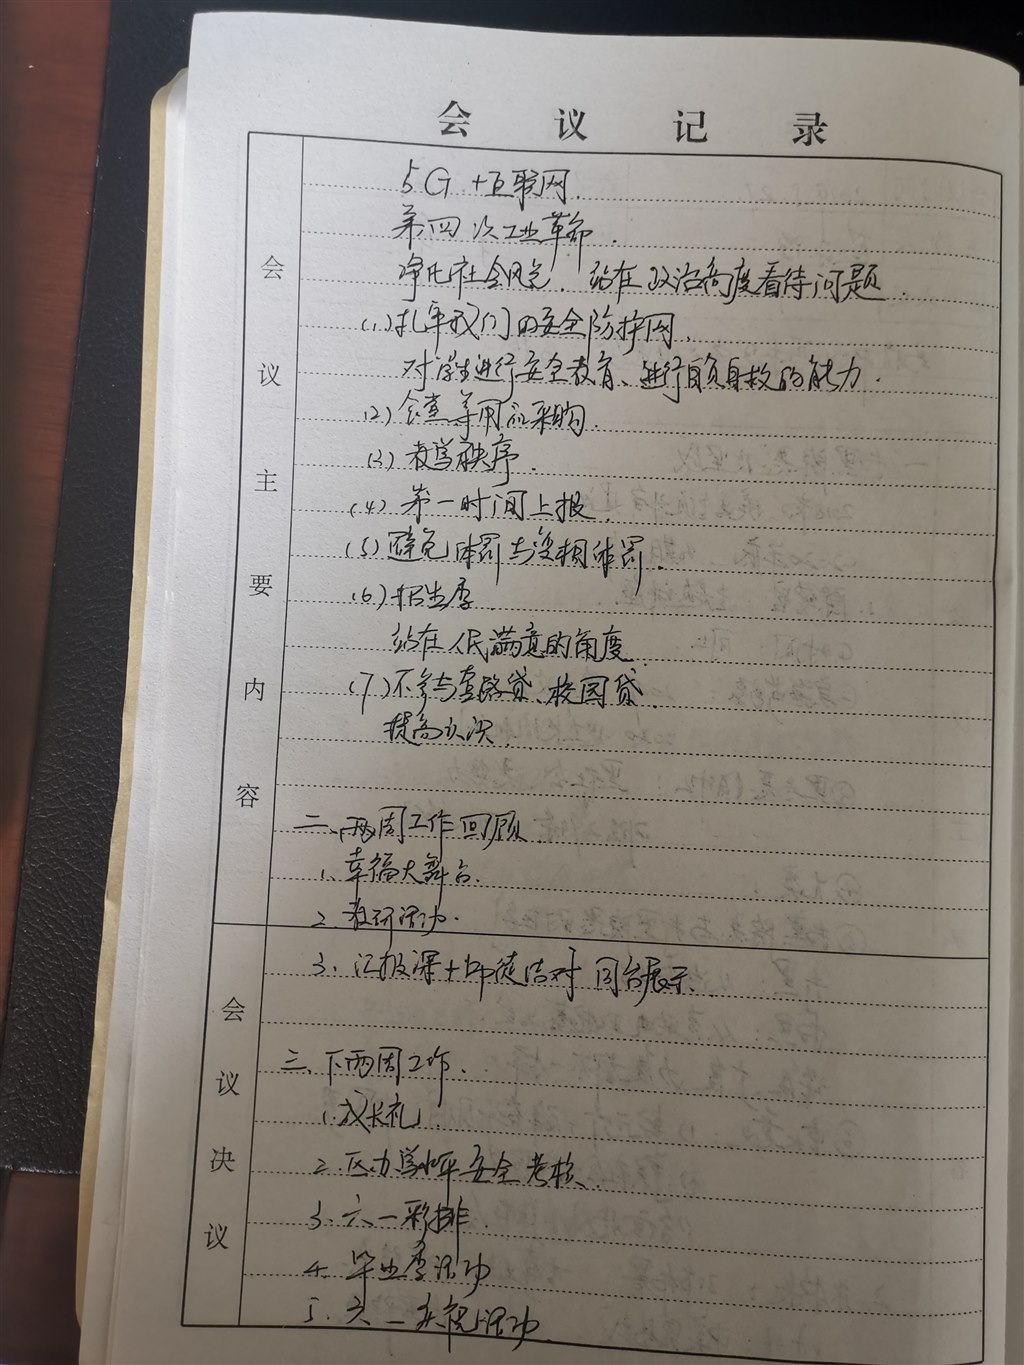 会议记录
会议主要内容
5G+互联网.
第四次工业革命.
净化社会风气. 站在政治高度看待问题.
(1)扎牢我们的安全防护网.
对学生进行安全教育、进行自负自救的能力.
(2)食堂等用应采购.
(3)教学秩序.
(4)第一时间上报.
(5)避免体罚与变相体罚.
(6)招生季.
站在人民满意的角度.
(7)不参与套路贷、校园贷.
提高认识.
二、两周工作回顾.
1.幸福大舞台.
2.教研活动.
会议决议
3.汇报课+师徒结对 同台展示.
三、下两周工作.
1.成长礼.
2.区办学水平安全考核.
3.六一彩排.
4.毕业季活动
5.六一庆祝活动.